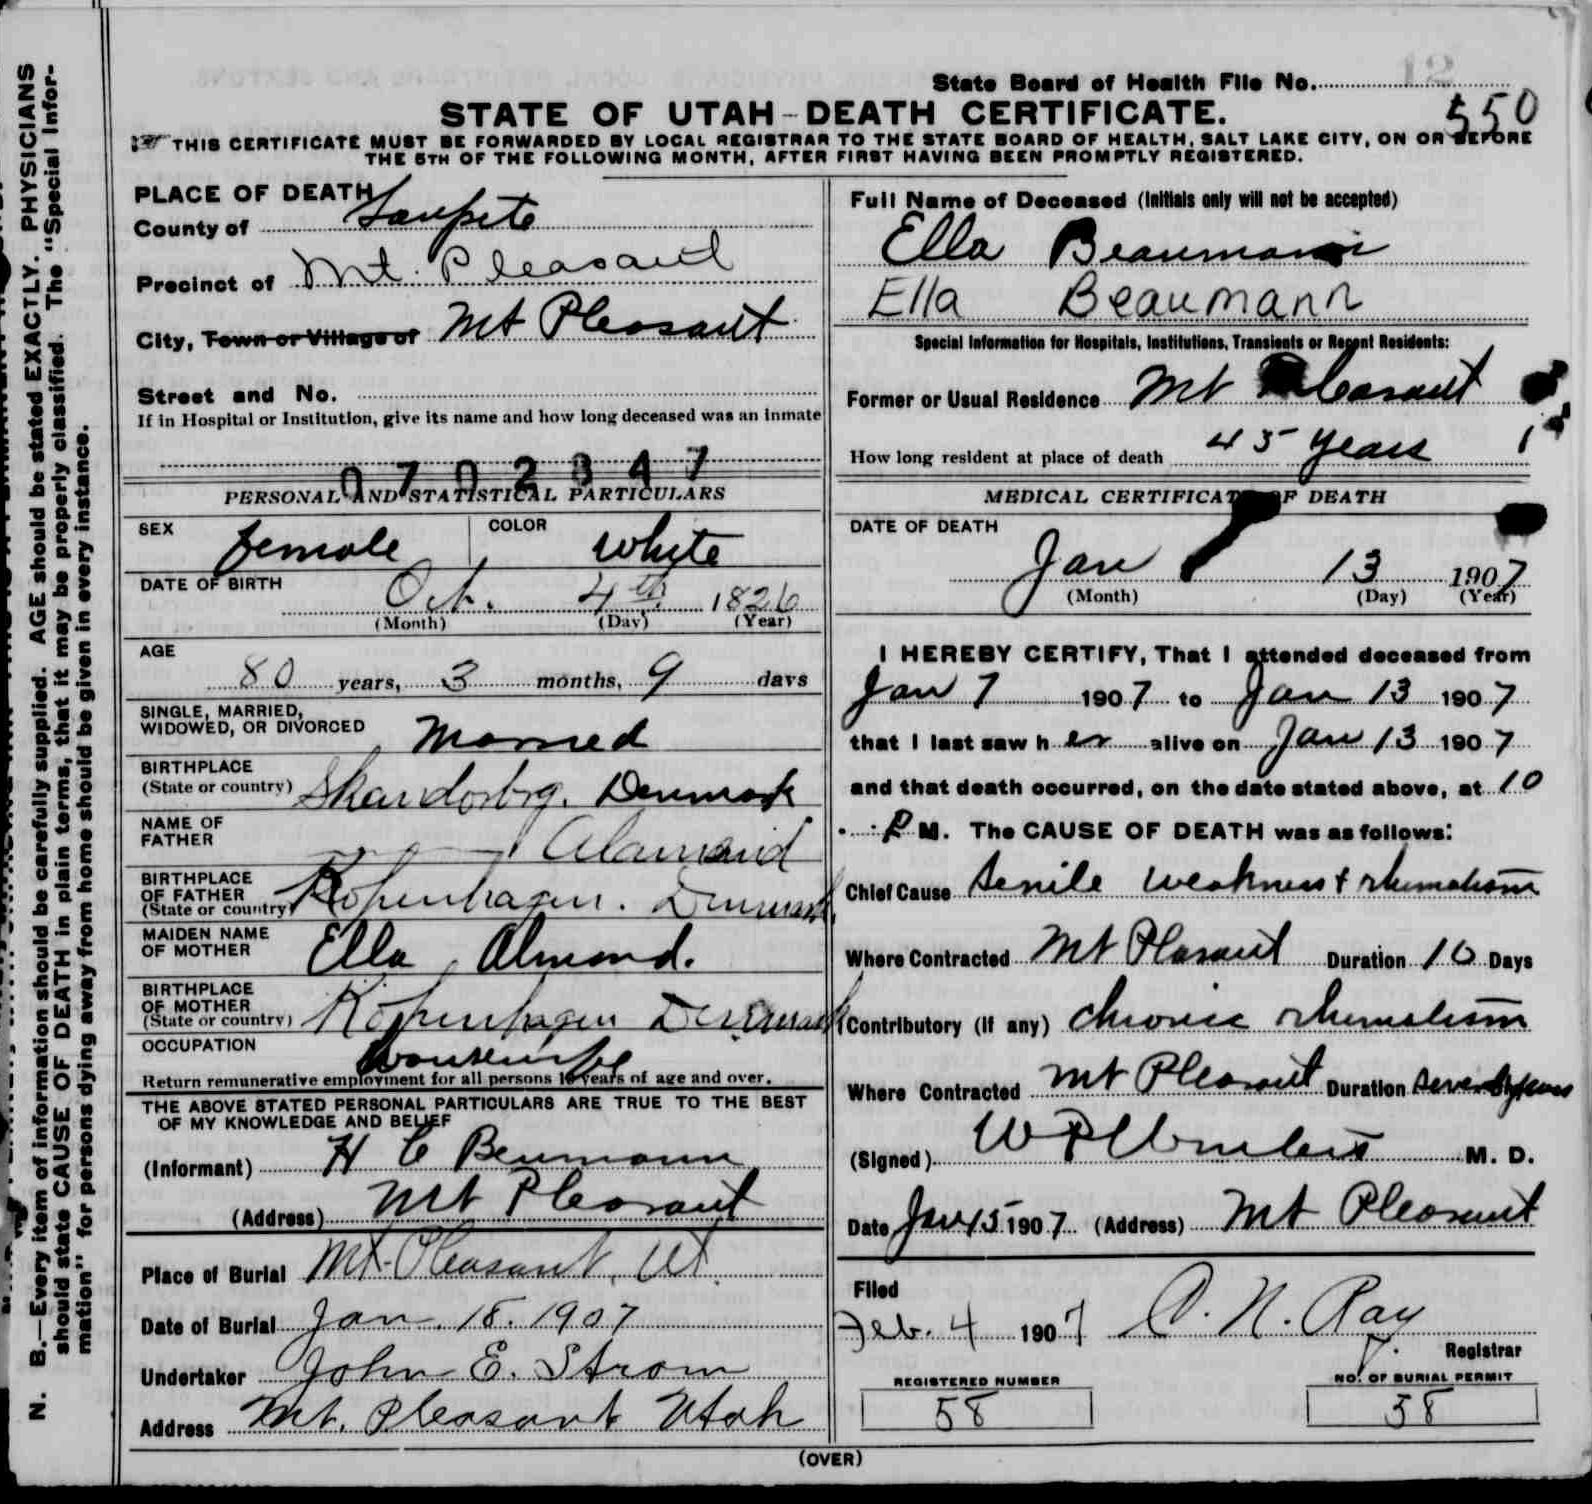 State Board of Health File No.
12
550
STATE OF UTAH-DEATH CERTIFICATE.
THIS CERTIFICATE MUST BE FORWARDED BY LOCAL REGISTRAR TO THE STATE BOARD OF HEALTH, SALT LAKE CITY, ON OR BEFORE
THE 5TH OF THE FOLLOWING MONTH, AFTER FIRST HAVING BEEN PROMPTLY REGISTERED.
N. B.—Every item of information should be carefully supplied. AGE should be stated EXACTLY. PHYSICIANS
should state CAUSE OF DEATH in plain terms, that it may be properly classified. The "Special Infor-
mation" for persons dying away from home should be given in every instance.
PLACE OF DEATH
County of Sanpete
Precinct of Mt. Pleasant
City, Town or Village of Mt Pleasant
Street and No.
If in Hospital or Institution, give its name and how long deceased was an inmate
0702347
PERSONAL AND STATISTICAL PARTICULARS
SEX female COLOR White
DATE OF BIRTH Oct. 4th 1826
(Month) (Day) (Year)
AGE
80 years, 3 months, 9 days
SINGLE, MARRIED,
WIDOWED, OR DIVORCED Married
BIRTHPLACE
(State or country) Skanderbrg. Denmark
NAME OF
FATHER
BIRTHPLACE
OF FATHER
(State or country) Kopenhagen. Denmark.
MAIDEN NAME
OF MOTHER Ella Almond.
BIRTHPLACE
OF MOTHER
(State or country) Kopenhagen Denmark
OCCUPATION Housewife
Return remunerative employment for all persons 10 years of age and over.
THE ABOVE STATED PERSONAL PARTICULARS ARE TRUE TO THE BEST
OF MY KNOWLEDGE AND BELIEF
(Informant) H C Beumann
(Address) Mt Pleasant
Place of Burial Mt. Pleasant, Ut.
Date of Burial Jan. 18. 1907
Undertaker John E. Strom
Address Mt. Pleasant Utah
Full Name of Deceased (Initials only will not be accepted)
Ella Beaumann
Ella Beaumann
Special Information for Hospitals, Institutions, Transients or Recent Residents:
Former or Usual Residence Mt Pleasant
How long resident at place of death 45 years
MEDICAL CERTIFICATE OF DEATH
DATE OF DEATH
Jan 13 1907
(Month) (Day) (Year)
I HEREBY CERTIFY, That I attended deceased from
Jan 7 1907 to Jan 13 1907
that I last saw her alive on Jan 13 1907
and that death occurred, on the date stated above, at 10
P M. The CAUSE OF DEATH was as follows:
Chief Cause Senile Weakness + rhumatism
Where Contracted Mt Plasant Duration 10 Days
Contributory (if any) Chronic rhumatism
Where Contracted Mt Pleasant Duration Several years
(Signed) M. D.
Date Jan 15 1907 (Address) Mt Pleasant
Filed
Feb. 4 1907 A. N. Ray
Registrar
REGISTERED NUMBER
58
NO. OF BURIAL PERMIT
58
(OVER)